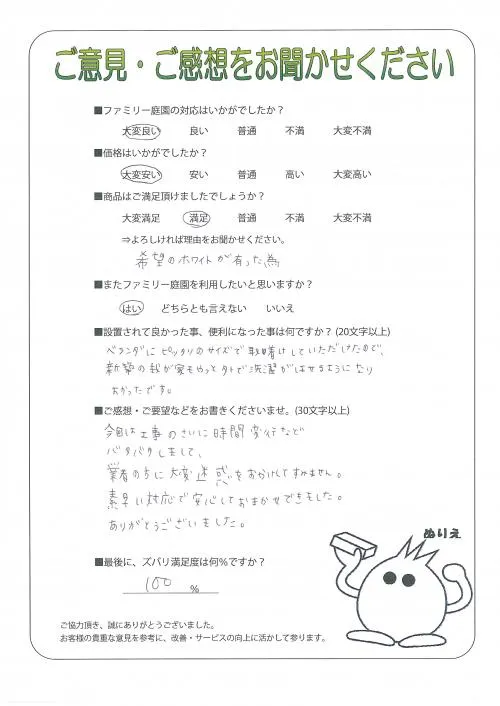 ご意見・ご感想をお聞かせください
■ファミリー庭園の対応はいかがでしたか？
大変良い 良い 普通 不満 大変不満
■価格はいかがでしたか？
大変安い 安い 普通 高い 大変高い
■商品はご満足頂けましたでしょうか？
大変満足 満足 普通 不満 大変不満
⇒よろしければ理由をお聞かせください。
希望のホワイトが有った為
■またファミリー庭園を利用したいと思いますか？
はい どちらとも言えない いいえ
■設置されて良かった事、便利になった事は何ですか？(20文字以上)
ベランダにピッタリのサイズで取着けしていただけたので、
新築の我が家もやっと外で洗濯がほせるようになり
よかったです。
■ご感想・ご要望などをお書きくださいませ。(30文字以上)
今回は工事のさいに時間変行など
バタバタしまして、
業者の方に大変迷惑をおかけしてすみません。
素早い対応で安心しておまかせできました。
ありがとうございました。
ぬりえ
■最後に、ズバリ満足度は何%ですか？
100 %
ご協力頂き、誠にありがとうございました。
お客様の貴重な意見を参考に、改善・サービスの向上に活かして参ります。